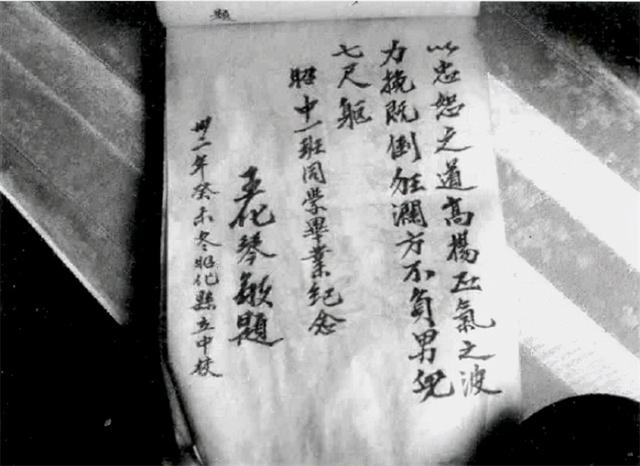 以忠恕之道高揚正氣之波
力挽既倒狂瀾方不負男兒
七尺軀
昭中一班同學畢業紀念
王化琴敬題
卅二年癸未冬昭化縣立中校